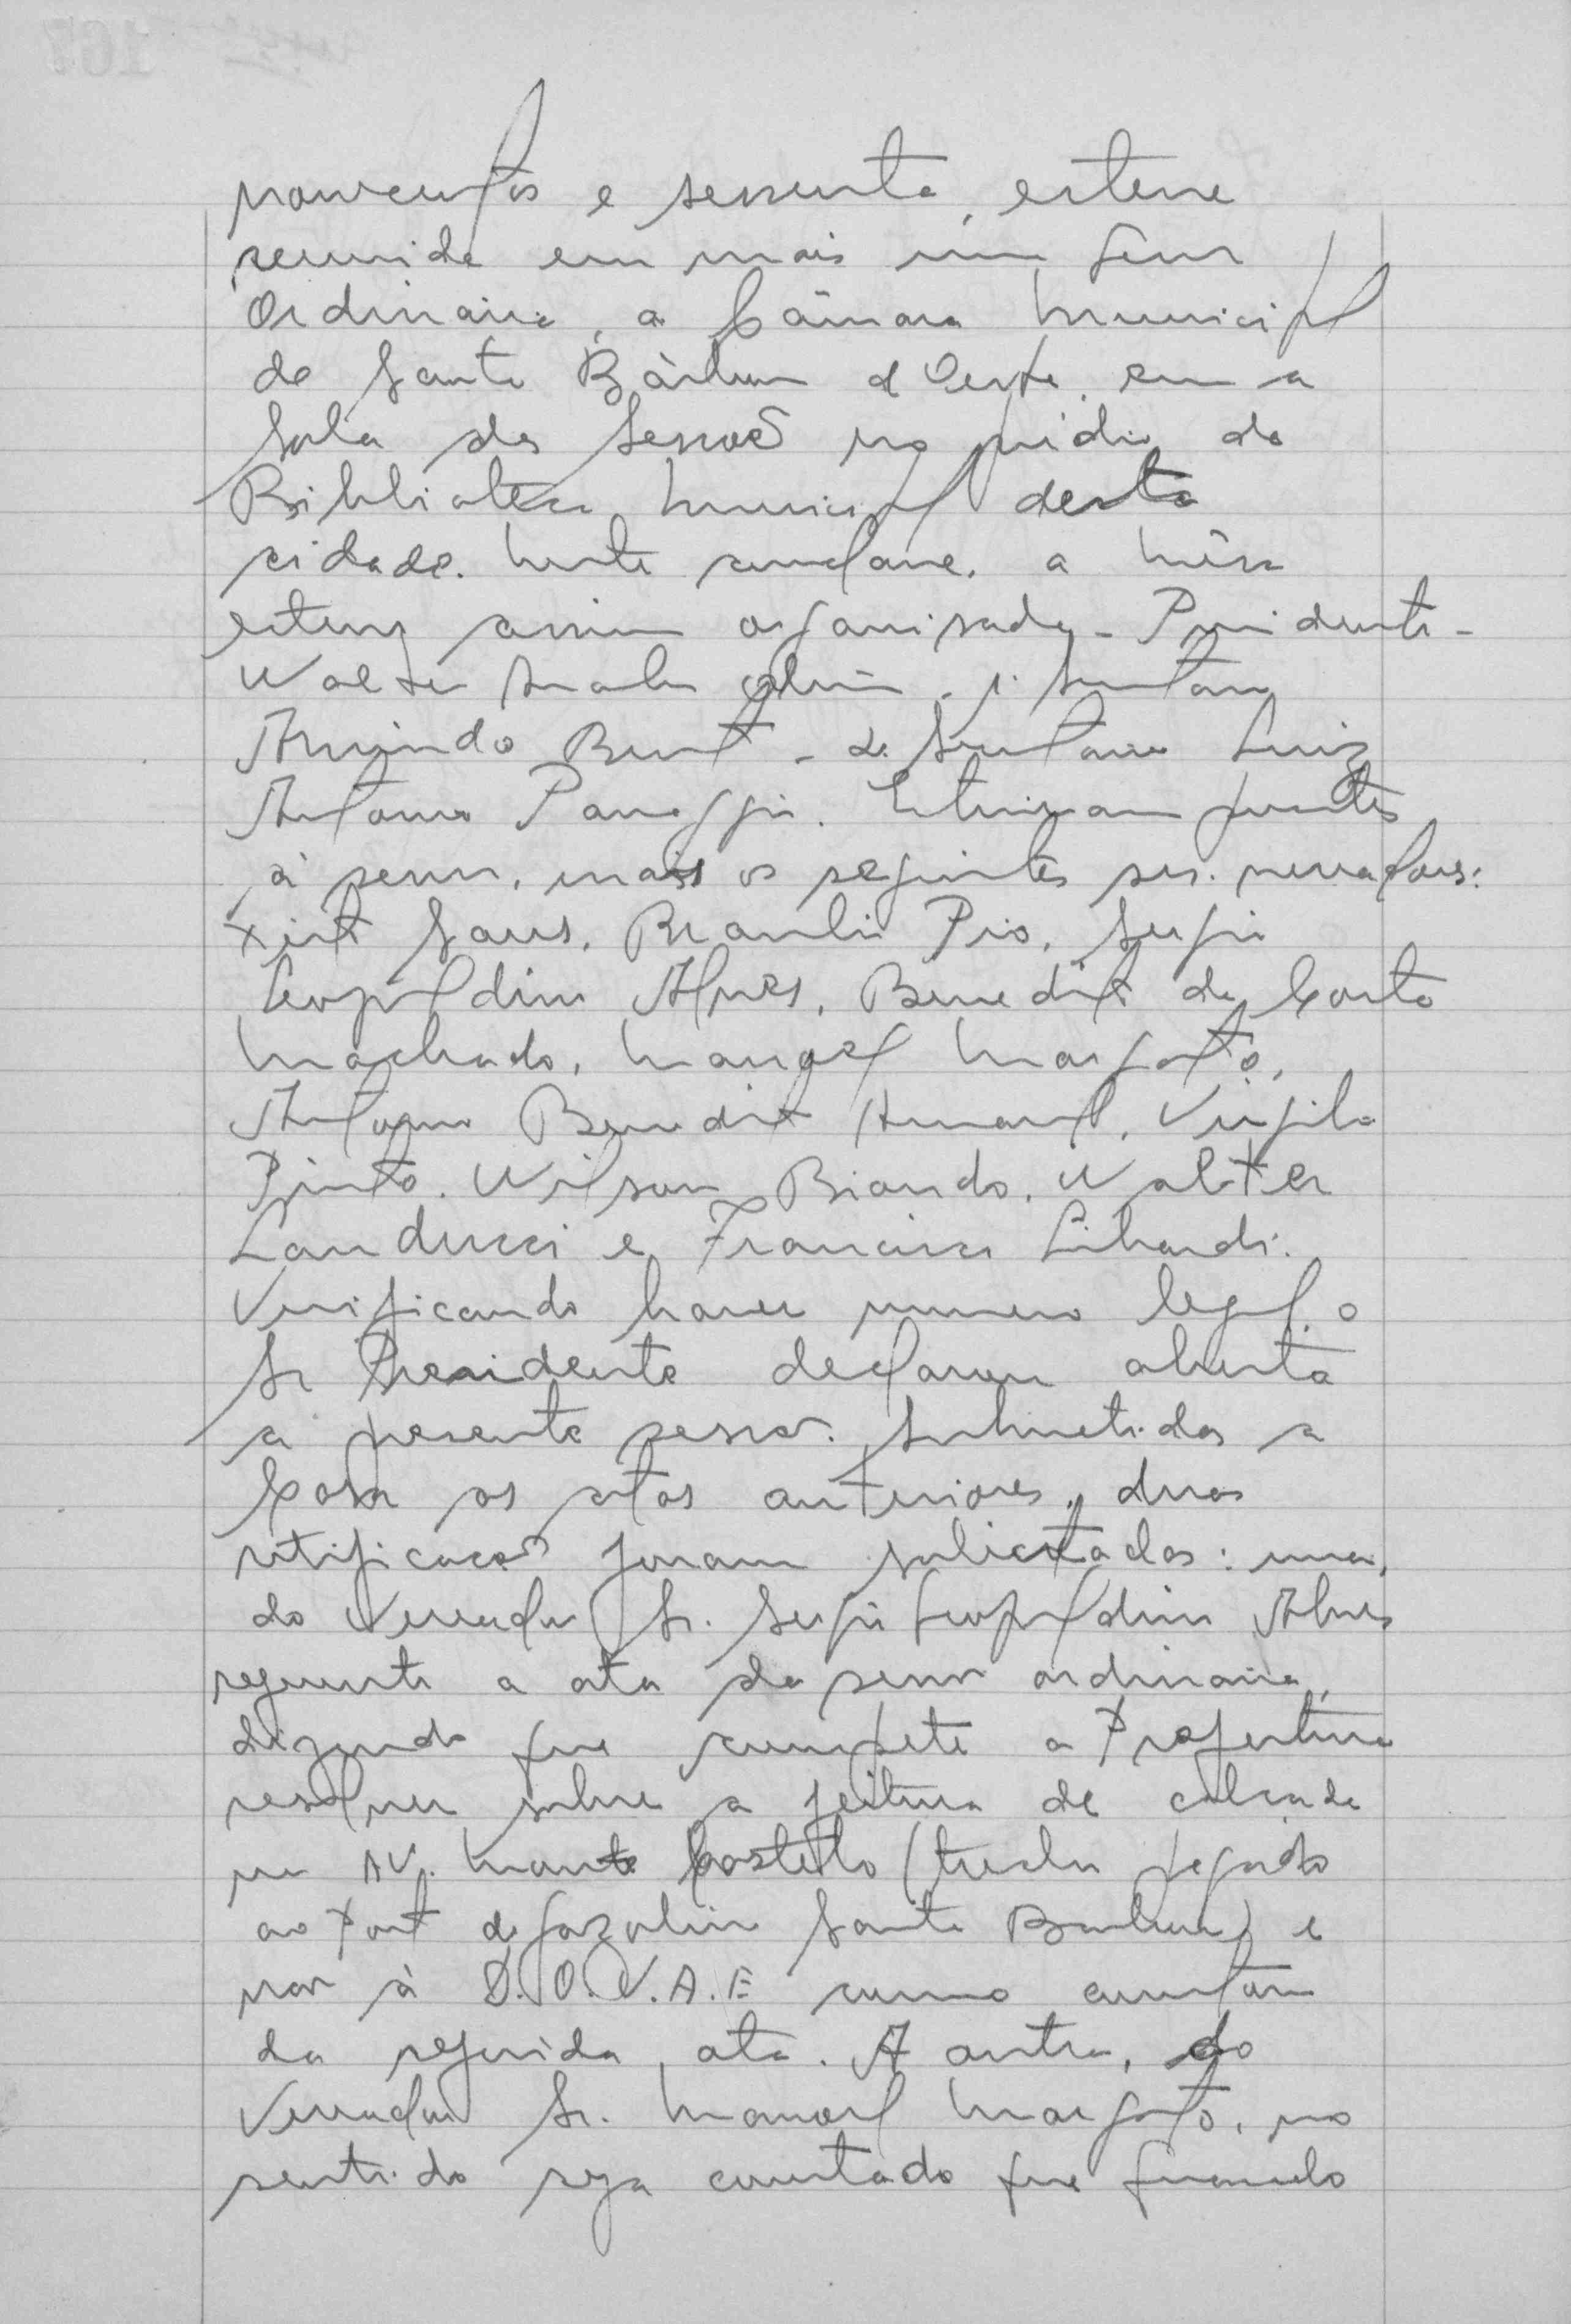 novecentos e sessenta, esteve
reunida em mais uma sessão
Ordinária, a Câmara Municipal
de Santa Bárbara d'Oeste, em a
Sala das Sessões no prédio da
Biblioteca Municipal desta
cidade. Neste a mêsa
esteve assim organisada - Presidente -
Walter 1º Secretario
Armindo - 2º Secretario Luiz
Antonio Panaggio. Estiveram presentes
à sessão, mais os seguintes srs. vereadores:
Braulio Pio, Sergio
Leopoldino Alves, Benedito da Costa
Machado, Manoel Margato,
Antonio Benedito Virgilio
Pinto, Wilson Biondo, Walter
Landucci e Francisco Libardi.
Verificando haver numero legal, o
Sr Presidente declarou aberta
a presente sessão. Submetidas a
Casa as atas anteriores, duas
retificações foram solicitadas: uma,
do Vereador Sr. Sergio Leopoldino Alves
referente a ata da sessão ordinaria,
dizendo que compete a Prefeitura
resolver sobre a feitura de calçada
na AV. Monte Castelo (trecho pegado
ao Posto de Gazolina Santa Barbara) e
não à D.O.V.A.E como constou
da referida ata. A outra, do
Vereador Sr. Manoel Margato, no
sentido seja constado que quando